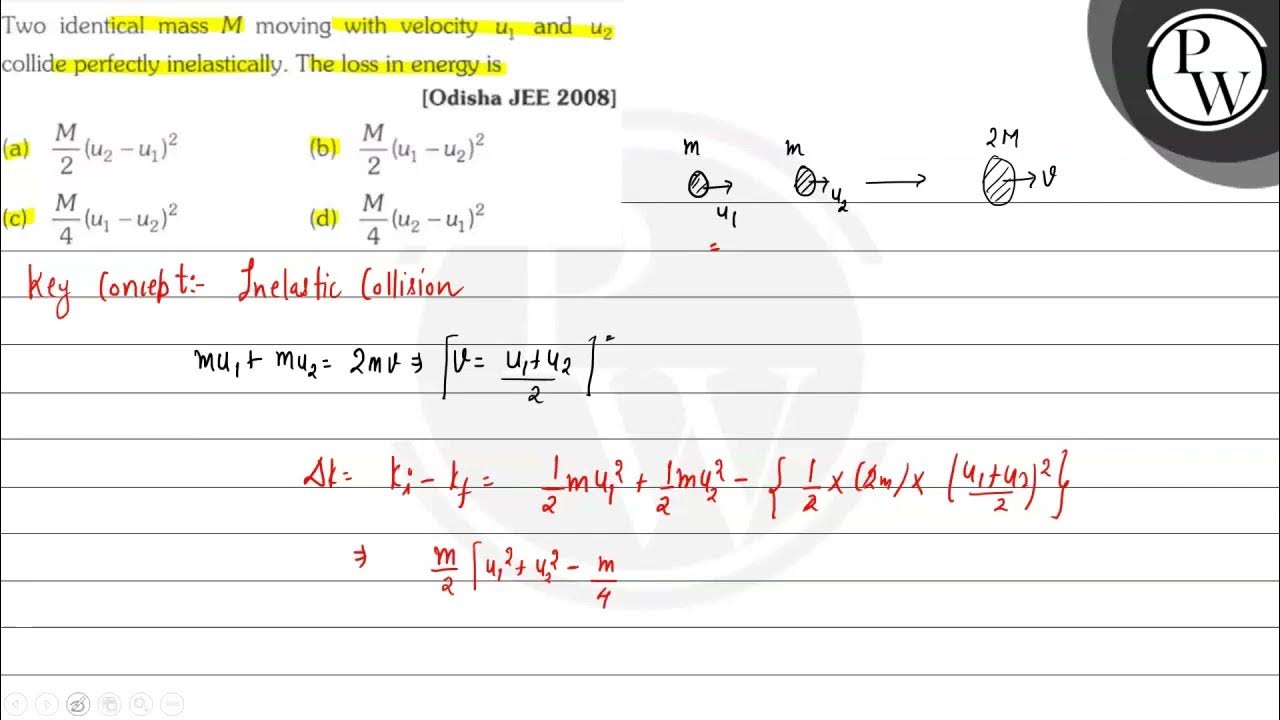 Two identical mass M moving with velocity u₁ and u₂
collide perfectly inelastically. The loss in energy is
[Odisha JEE 2008]
(a) M/2 (u₂ − u₁)² (b) M/2 (u₁ − u₂)²
(c) M/4 (u₁ − u₂)² (d) M/4 (u₂ − u₁)²
P
W
m m 2M
u₁ u₂ v
=
Key Concept:- Inelastic Collision
mu₁ + mu₂ = 2mv ⇒ [v = (u₁+u₂)/2]
Δk = kᵢ − k_f = 1/2 mu₁² + 1/2 mu₂² − { 1/2 × (2m) × ((u₁+u₂)/2)² }
⇒ m/2 [u₁² + u₂² − m/4